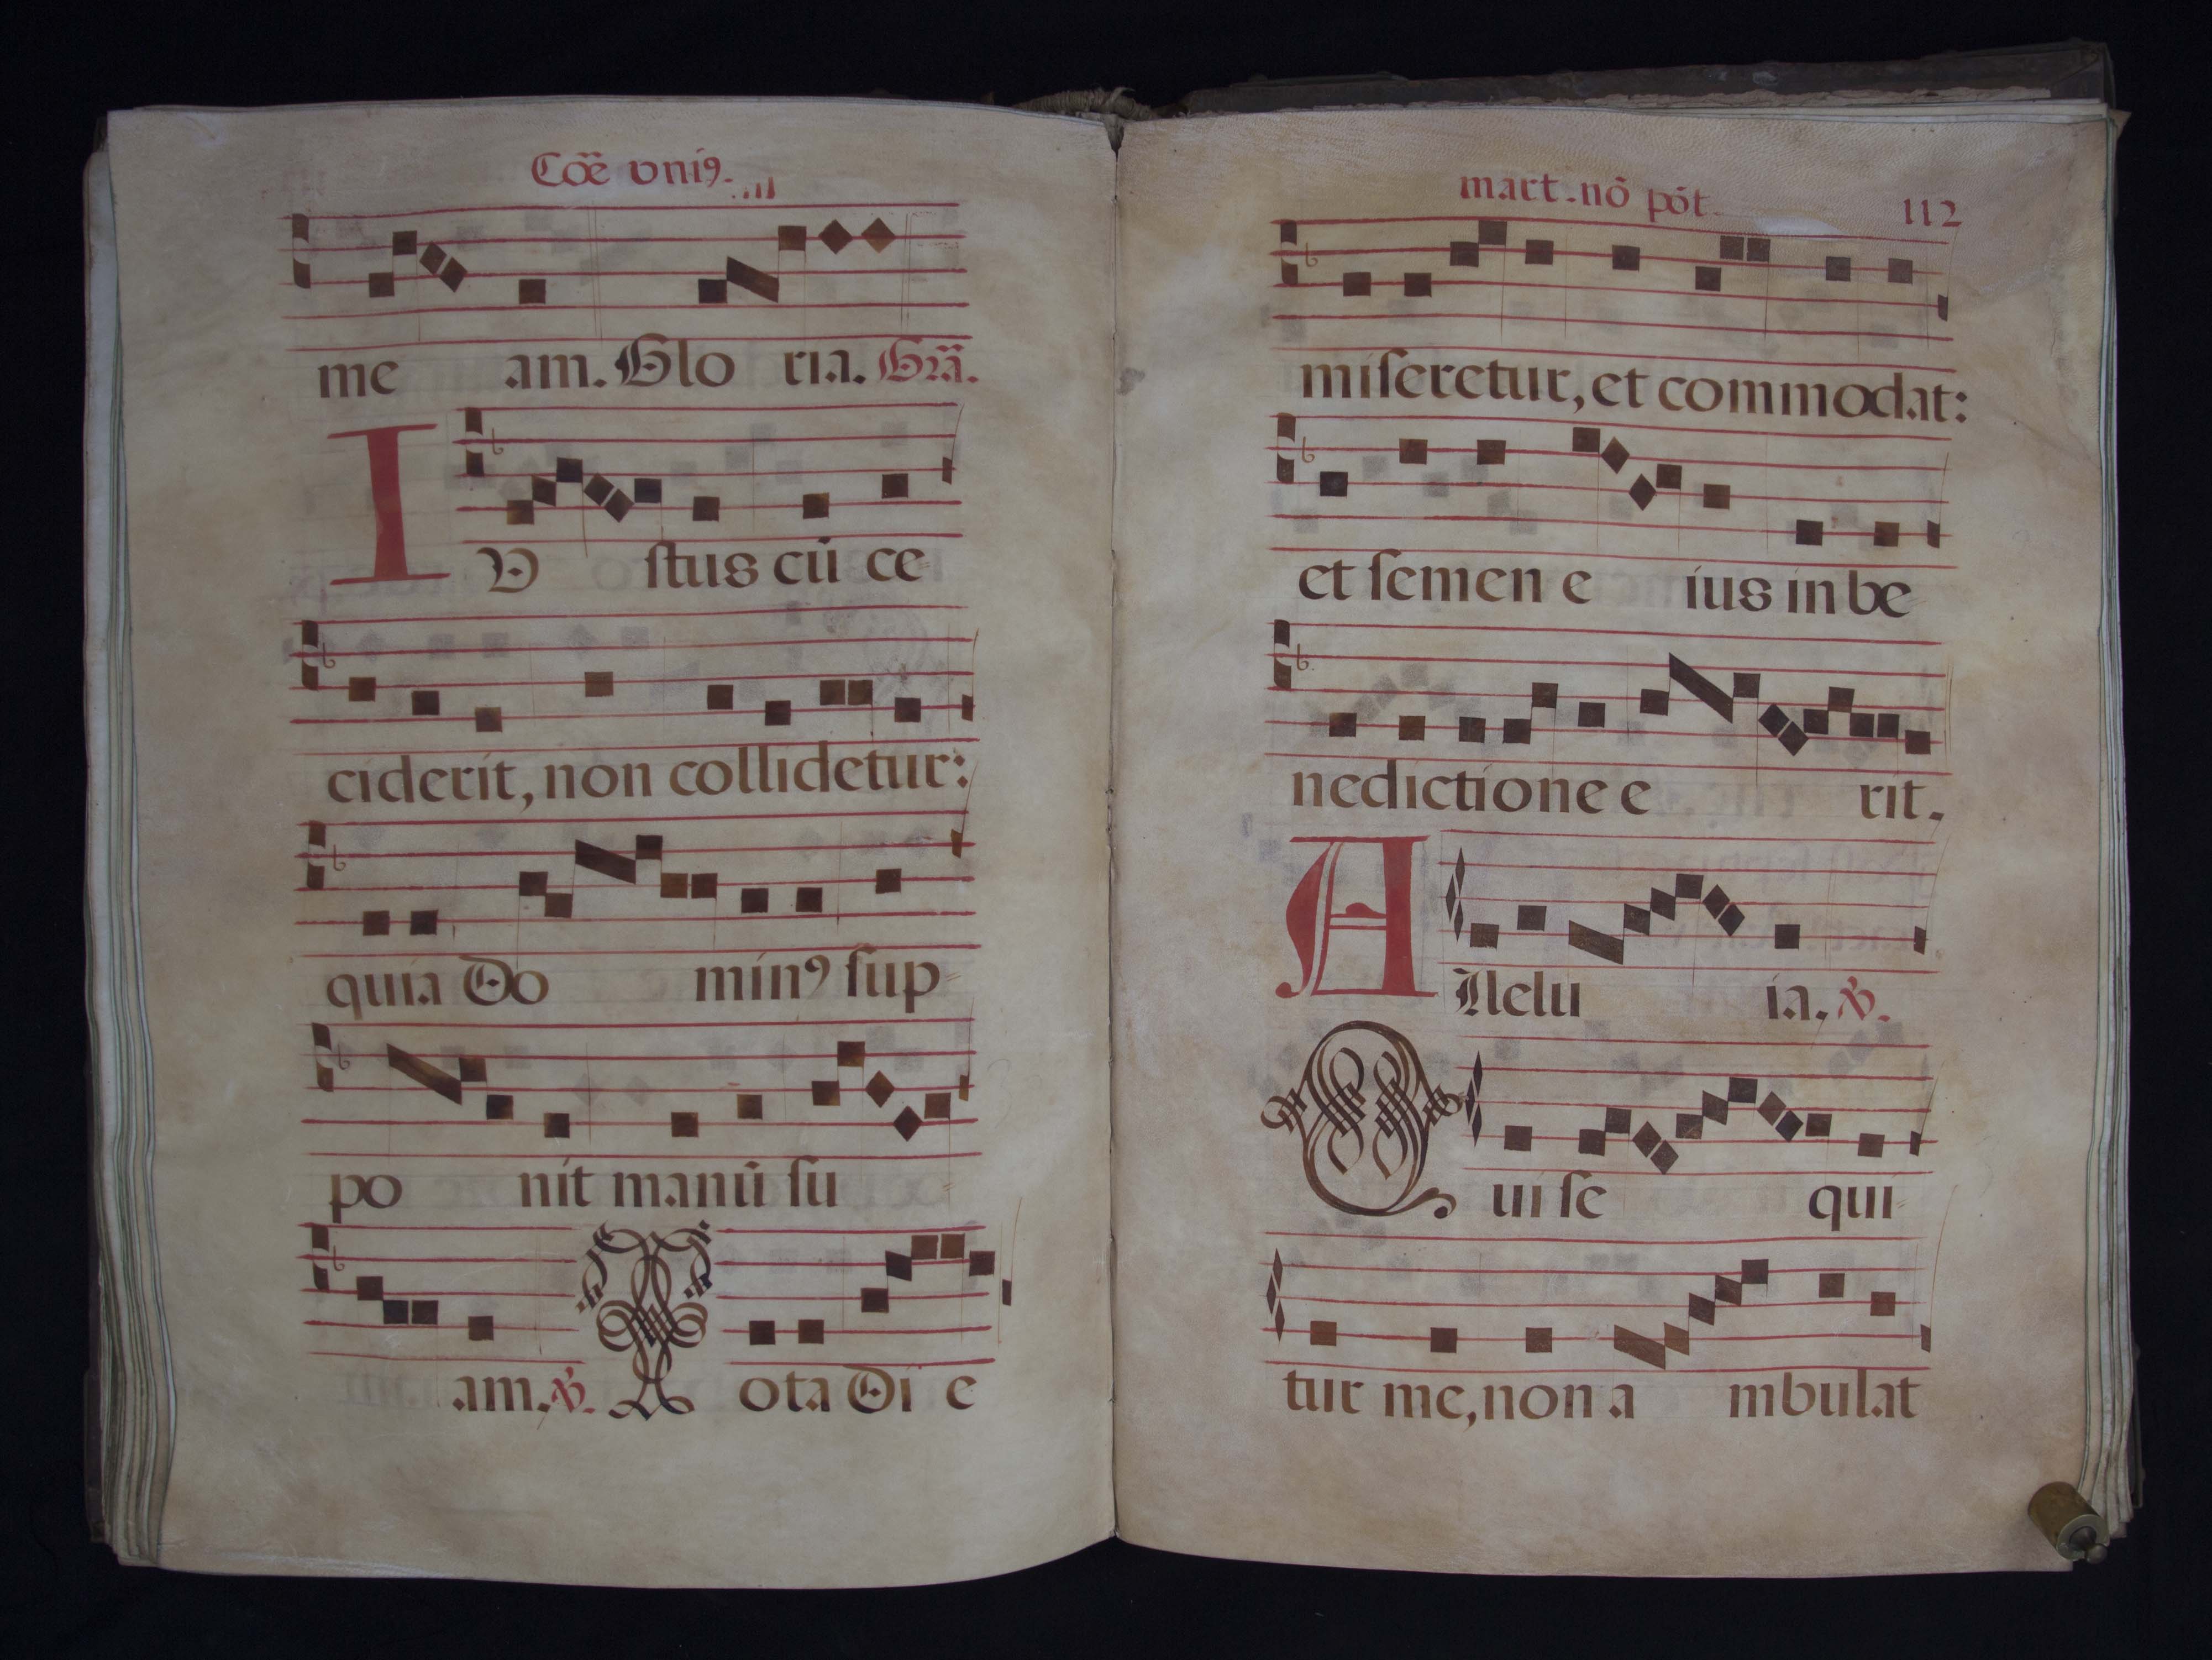 Cōē vniꝯ.
me am. Glo ria. Grā.
IV ſtus cū ce-
ciderit, non collidetur:
quia Do minꝯ ſup-
po nit manū ſu
am. ℣. Tota Di e
mart. nō pōt. 112
miſeretur, et commodat:
et ſemen e ius in be
nedictione e rit.
Allelu ia. ℣.
Qui ſe qui-
tur me, non a mbulat